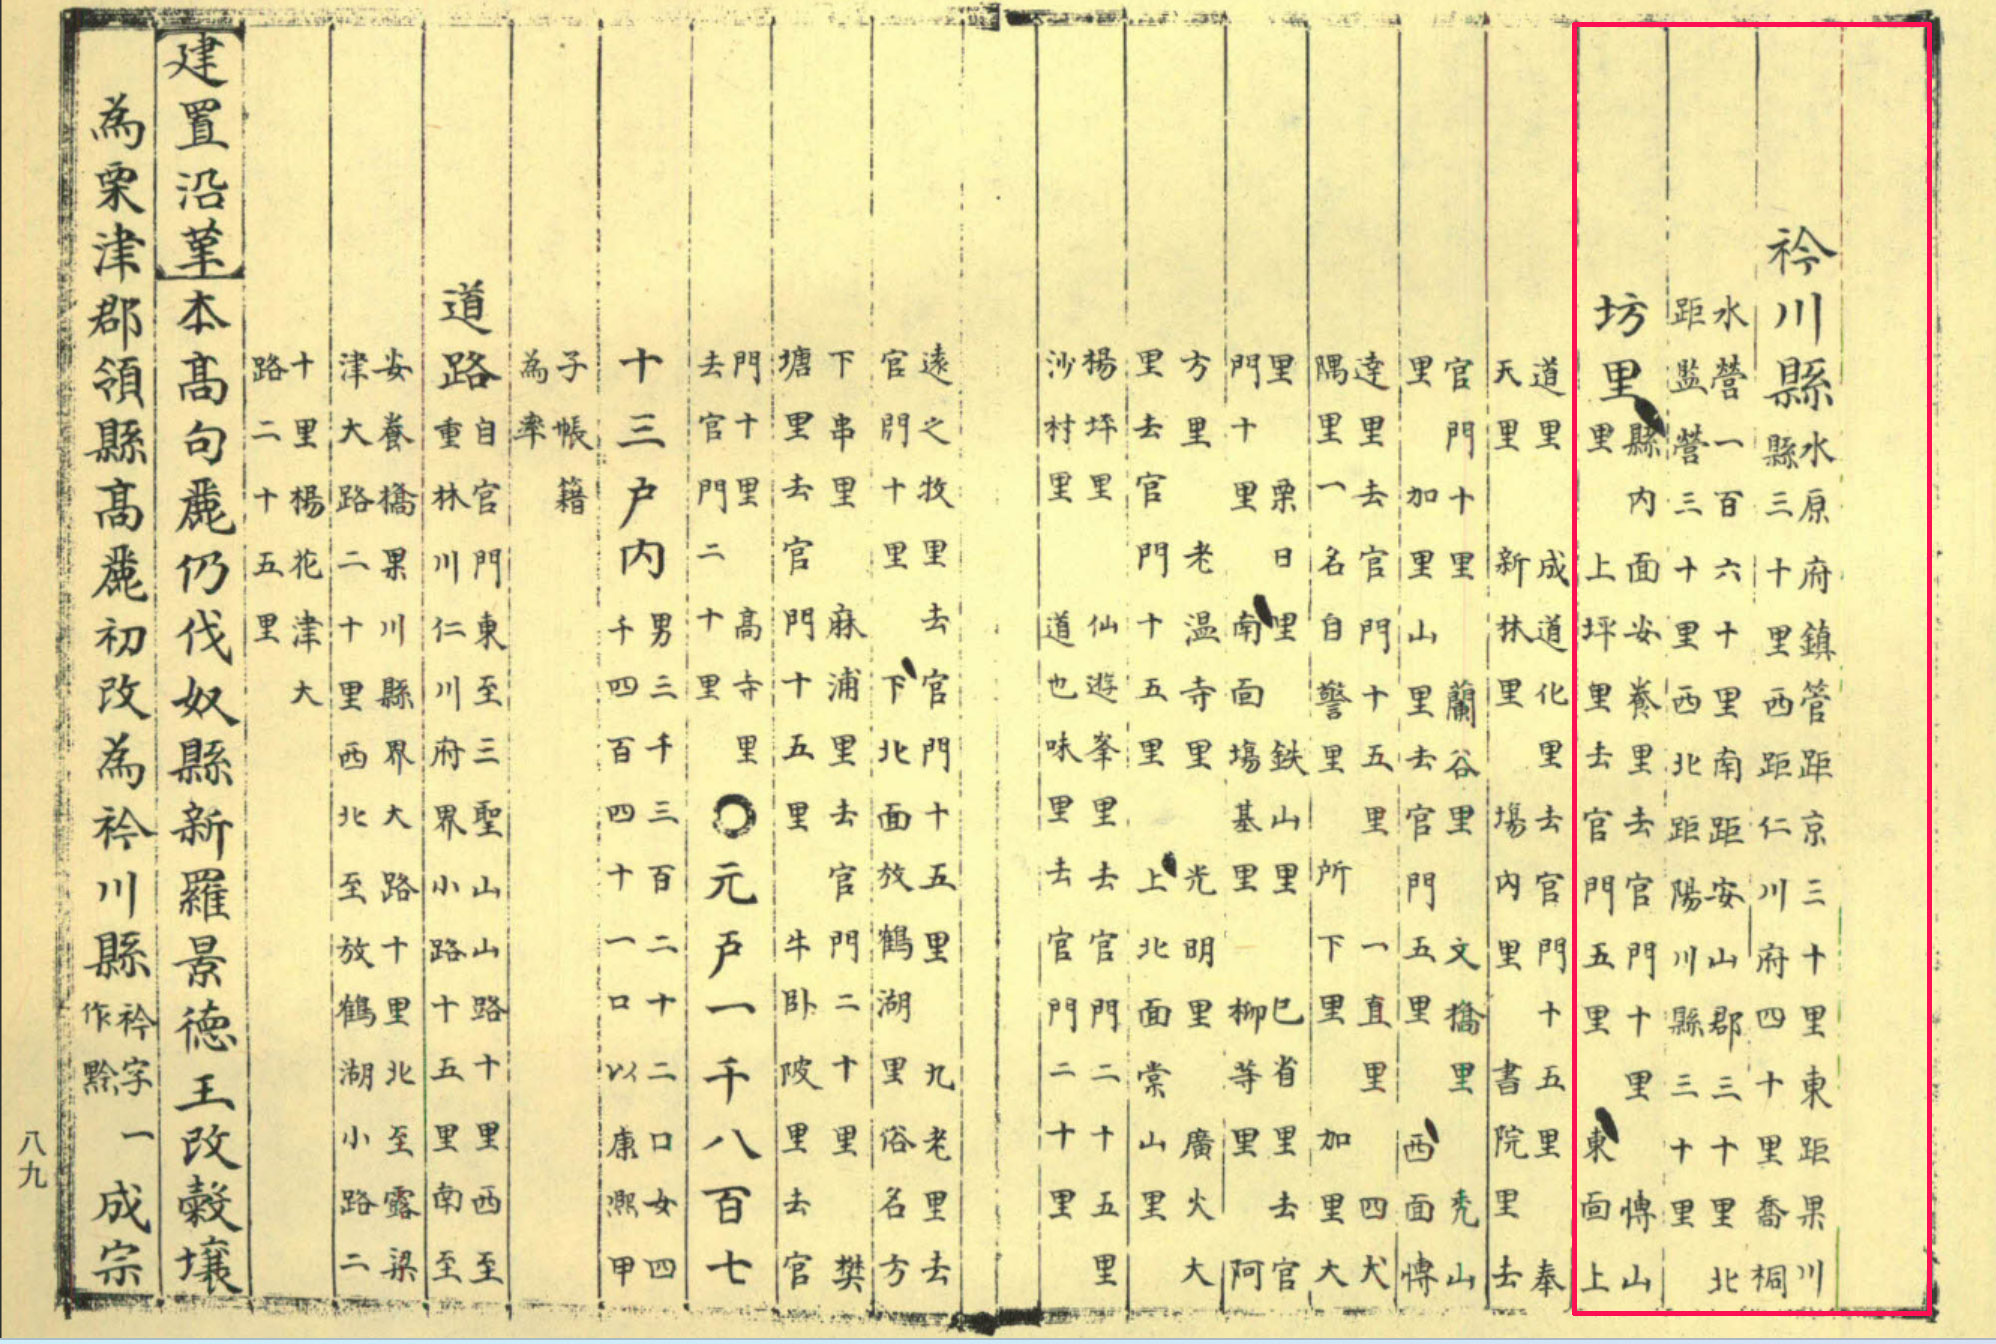 衿川縣
水原府鎮管距京三十里東距果川
縣三十里西距仁川府四十里喬桐
水營一百六十里南距安山郡三十里北
距監營三十里西北距陽川縣三十里
坊里
縣内面安養里去官門十里 博山
里 上坪里去官門五里 東面上
道里 成道化里去官門十五里 奉
天里 新林里 塲内里 書院里去
官門十里 蘭谷里 文橋里 禿山
里 加里山里去官門五里 西面博
逹里去官門十五里 一直里 四犬
隅里一名自警里 所下里 加里大
里 栗日里 鉄山里 已省里去官
門十里 南面塲基里 柳等里 阿
方里 老温寺里 光明里 廣火大
里去官門十五里 上北面棠山里
楊坪里 仙遊峯里去官門二十五里
沙村里 道也味里去官門二十里
遠之牧里去官門十五里 九老里去
官門十里 下北面放鶴湖里俗名方
下串里 麻浦里去官門二十里 樊
塘里去官門十五里 牛卧陂里去官
門十里 高寺里
去官門二十里
○元戸一千八百七
十三户内
男三千三百二十二口女四
千四百四十一口以康熙甲
子帳籍
為率
道路
自官門東至三聖山山路十里西至
重林川仁川府界小路十五里南至
安養橋果川縣界大路十里北至露梁
津大路二十里西北至放鶴湖小路二
十里楊花津大
路二十五里
建置沿革本高句麗仍伐奴縣新羅景徳王改穀壤
為栗津郡領縣高麗初改為衿川縣
衿字一
作黔
成宗
八九